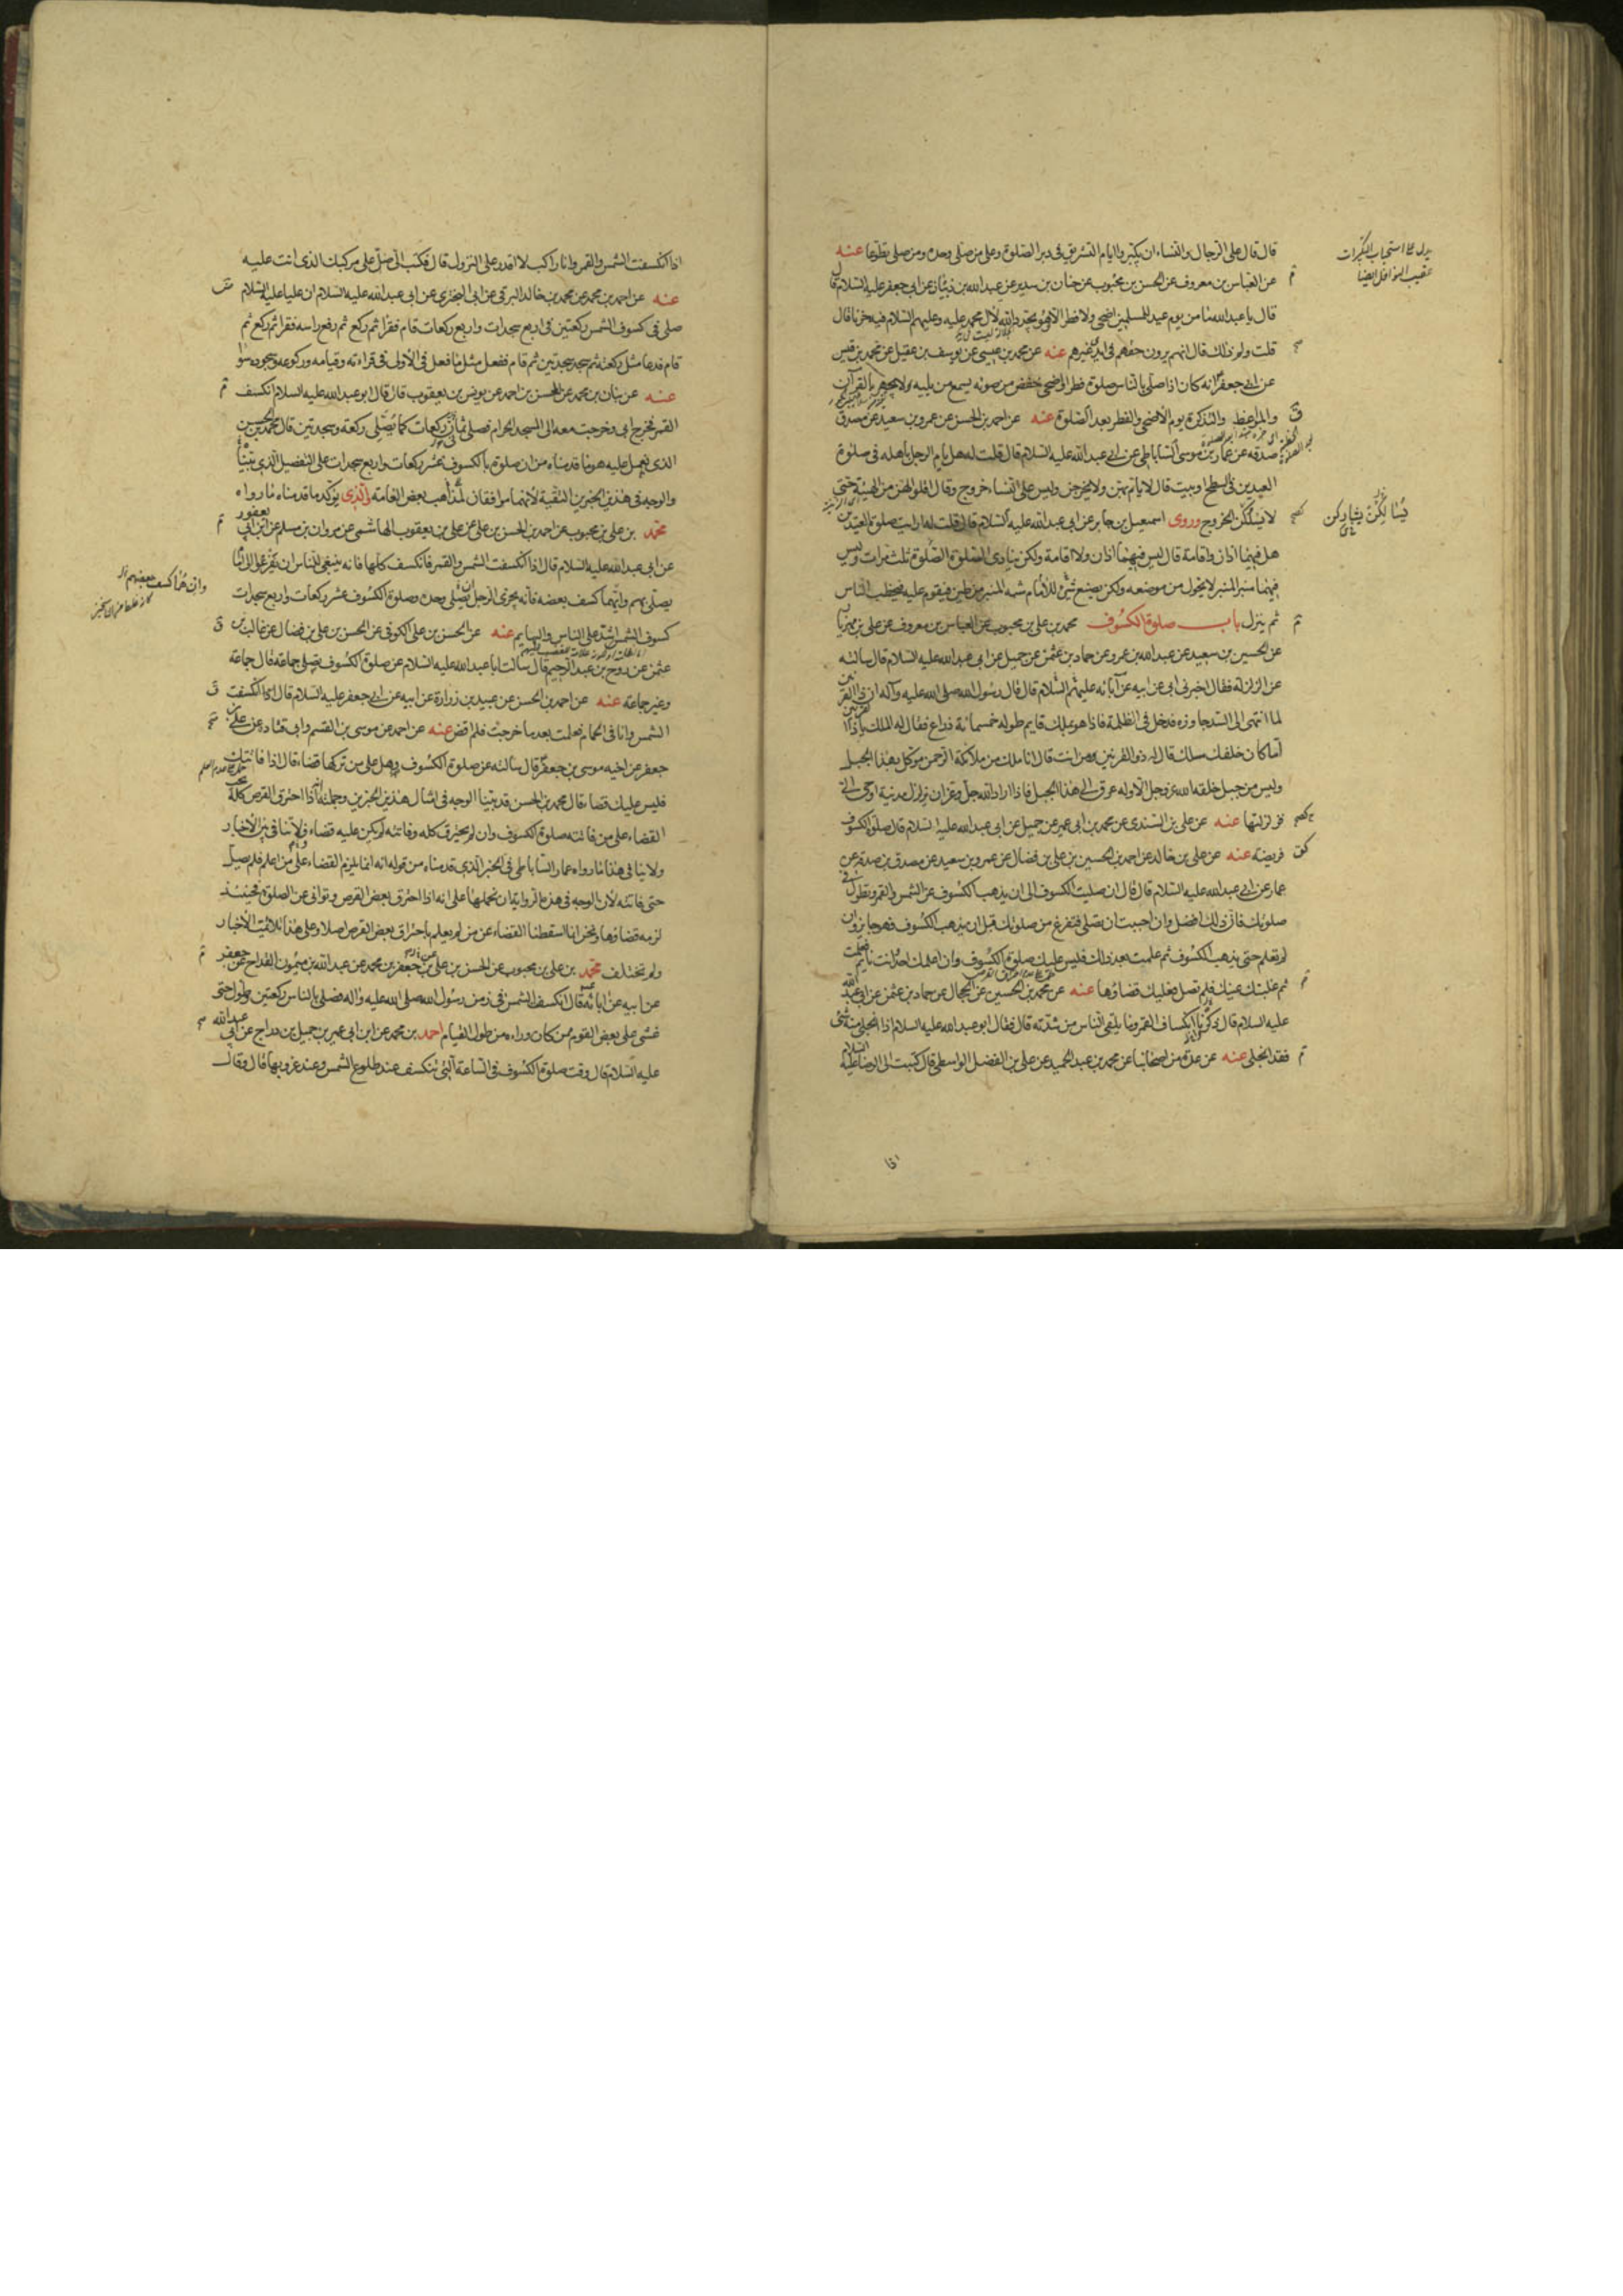 قال قال على الرجال والنساء ان يكبروا ايام التشريق فى دبر الصلوة وعلى من صلى وحده ومن صلى تطوعا عنه
عن العباس بن معروف عن الحسن بن محبوب عن حنان بن سدير عن عبدالله بن دينار عن ابى جعفر عليه السلام قال
قال يا عبدالله ما من يوم عيد للمسلمين اضحى ولا فطر الا وهو يجدد الله لآل محمد عليه وعليهم السلام فيه حزنا قال
قلت ولم ذلك قال انهم يرون حقهم فى ايدى غيرهم عنه عن محمد بن عيسى عن يوسف بن عقيل عن محمد بن قيس
عن ابى جعفر انه كان اذا صلى بالناس صلوة فطر او اضحى خفض من صوته يسمع من يليه ولا يجهر بالقرآن
والمواعظ والتذكرة يوم الاضحى والفطر بعد الصلوة عنه عن احمد بن الحسن عن عمرو بن سعيد عن مصدق
صدقه عن عمار بن موسى الساباطى عن ابى عبدالله عليه السلام قال قلت له هل يام الرجل باهله فى صلوة
العيدين فى السطح او بيت قال لا يام بهن ولا يخرجن وليس على النساء خروج وقال اقلوا لهن من الهيئة حتى
لا يسئلن الخروج وروى اسمعيل بن جابر عن ابى عبدالله عليه السلام قال قلت له ارايت صلوة العيدين
هل فيهما اذان واقامة قال ليس فيهما اذان ولا اقامة ولكن ينادى الصلوة الصلوة ثلث مرات وليس
فيهما منبر المنبر لا يحول من موضعه ولكن يصنع شئ للامام شبه المنبر من طين فيقوم عليه فيخطب الناس
ثم ينزل باب صلوة الكسوف محمد بن على بن محبوب عن العباس بن معروف عن على بن مهزيار
عن الحسين بن سعيد عن عبدالله بن عمرو عن حماد بن عثمن عن جميل عن ابى عبدالله عليه السلام قال سالته
عن الزلزلة فقال اخبرنى ابى عن ابيه عن آبائه عليهم السلام قال قال رسول الله صلى الله عليه وآله ان ذا القرنين
لما انتهى الى السد جاوزه فدخل فى الظلمة فاذا هو بملك قايم طوله خمسمائة ذراع فقال له الملك يا ذا القرنين
اما كان خلفك مسلك فقال له ذو القرنين ومن انت قال انا ملك من ملائكة الرحمن موكل بهذا الجبل
وليس من جبل خلقه الله عز وجل الا وله عرق الى هذا الجبل فاذا اراد الله جل وعز ان يزلزل مدينة اوحى الى
فزلزلتها عنه عن على بن السندى عن محمد بن ابى عمير عن جميل عن ابى عبدالله عليه السلام قال صلوة الكسوف
فريضة عنه عن على بن خالد عن احمد بن الحسين بن على بن فضال عن عمرو بن سعيد عن مصدق بن صدقه عن
عمار عن ابى عبدالله عليه السلام قال قال ان صليت الكسوف الى ان يذهب الكسوف عن الشمس والقمر وتطول فى
صلوتك فان ذلك افضل وان احببت ان تصلى فتفرغ من صلوتك قبل ان يذهب الكسوف فهو جايز وان
لم تعلم حتى يذهب الكسوف ثم علمت بعد ذلك فليس عليك صلوة الكسوف وان اعلمك احد وانت نايم فعلمت
ثم غلبتك عينك فلم تصل فعليك قضاؤها عنه عن محمد بن الحسين عن الحجال عن حماد بن عثمن عن ابى عبدالله
عليه السلام قال ذكرنا انكساف القمر وما يلقى الناس من شدته قال فقال ابو عبدالله عليه السلام اذا انجلى منه شئ
فقد انجلى عنه عن عدة من اصحابنا عن محمد بن عبد الحميد عن على بن الفضل الواسطى قال كتبت الى الرضا عليه السلام
اذا
يدل على استحباب التكبيرات
عقيب النوافل ايضا
اذا انكسفت الشمس والقمر وانا راكب لا اقدر على النزول قال فكتب الى صل على مركبك الذى انت عليه
عنه عن احمد بن محمد عن محمد بن خالد البرقى عن ابى البخترى عن ابى عبدالله عليه السلام ان عليا عليه السلام
صلى فى كسوف الشمس ركعتين فى اربع سجدات واربع ركعات قام فقرأ ثم ركع ثم رفع راسه فقرا ثم ركع ثم
قام فدعا مثل ركعته ثم سجد سجدتين ثم قام ففعل مثل ما فعل فى الاولى فى قراءته وقيامه وركوعه وسجوده سواء
عنه عن بنان بن محمد عن المحسن بن احمد عن يونس بن يعقوب قال قال ابو عبدالله عليه السلام انكسف
القمر فخرج ابى وخرجت معه الى المسجد الحرام فصلى ثمان ركعات كما يصلى ركعة وسجدتين قال محمد بن الحسن
الذى نعمل عليه هو ما قدمناه من ان صلوة الكسوف عشر ركعات واربع سجدات على التفصيل الذى بيناه
والوجه فى هذين الخبرين التقية لانهما موافقان لمذاهب بعض العامة والذى يؤكد ما قدمناه ما رواه
محمد بن على بن محبوب عن احمد بن الحسن بن على عن على بن يعقوب الهاشمى عن مروان بن مسلم عن ابن ابى يعفور
عن ابى عبدالله عليه السلام قال اذا انكسفت الشمس والقمر فانكسف كلها فانه ينبغى للناس ان يفزعوا الى امام
يصلى بهم وايهما كسف بعضه فانه يجزى الرجل ان يصلى وحده وصلوة الكسوف عشر ركعات واربع سجدات
كسوف الشمس اشد على الناس والبهايم عنه عن الحسن بن على الكوفى عن الحسن بن على بن فضال عن غالب بن
عثمن عن روح بن عبد الرحيم قال سالت ابا عبدالله عليه السلام عن صلوة الكسوف تصلى جماعة قال جماعة
وغير جماعة عنه عن احمد بن الحسن عن عبيد بن زرارة عن ابيه عن ابى جعفر عليه السلام قال انكسفت
الشمس وانا فى الحمام فعلمت بعد ما خرجت فلم اقض عنه عن احمد عن موسى بن القسم وابى قتادة عن على بن
جعفر عن اخيه موسى بن جعفر قال سالته عن صلوة الكسوف وهل على من تركها قضاء قال اذا فاتتك
فليس عليك قضاء قال محمد بن الحسن قد بينا الوجه فى امثال هذين الخبرين وجملته انه اذا احترق القرص كله
القضاء على من فاتته صلوة الكسوف وان لم يحترق كله وفاتته لم يكن عليه قضاء ولا تنافى بين الاخبار
ولا ينافى هذا ما رواه عمار الساباطى فى الخبر الذى قدمناه من قوله انه انما يلزم القضاء على من اعلم فلم يصل
حتى فاتته لان الوجه فى هذه الرواية ان نحملها على انه اذا احترق بعض القرص وتوانى عن الصلوة فحينئذ
لزمه قضاؤها ونحن انما اسقطنا القضاء عن من لم يعلم باحتراق بعض القرص اصلا وعلى هذا تلايمت الاخبار
ولم تختلف محمد بن على بن محبوب عن الحسن بن على عن جعفر بن محمد عن عبدالله بن ميمون القداح عن جعفر
عن ابيه عن آبائه قال انكسف الشمس فى زمن رسول الله صلى الله عليه وآله فصلى بالناس ركعتين وطول حتى
غشى على بعض القوم ممن كان وراءه من طول القيام احمد بن محمد عن ابن ابى عمير عن جميل بن دراج عن ابى عبدالله
عليه السلام قال وقت صلوة الكسوف فى الساعة التى تنكسف عند طلوع الشمس وعند غروبها قال وقال